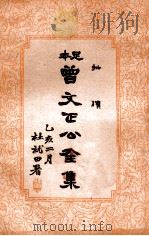 批牘
足本
曾文正公全集
乙亥二月
杜就田署